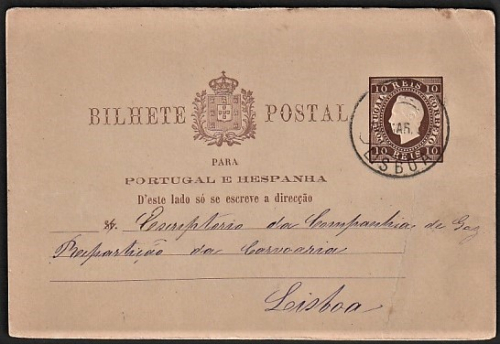 BILHETE POSTAL
10 REIS 10
PORTUGAL CORREIO
10 REIS 10
MAR.
LISBOA
PARA
PORTUGAL E HESPANHA
D'este lado só se escreve a direcção
Escreptorio da Companhia de Gaz
Repartição da Carvoaria
Lisboa